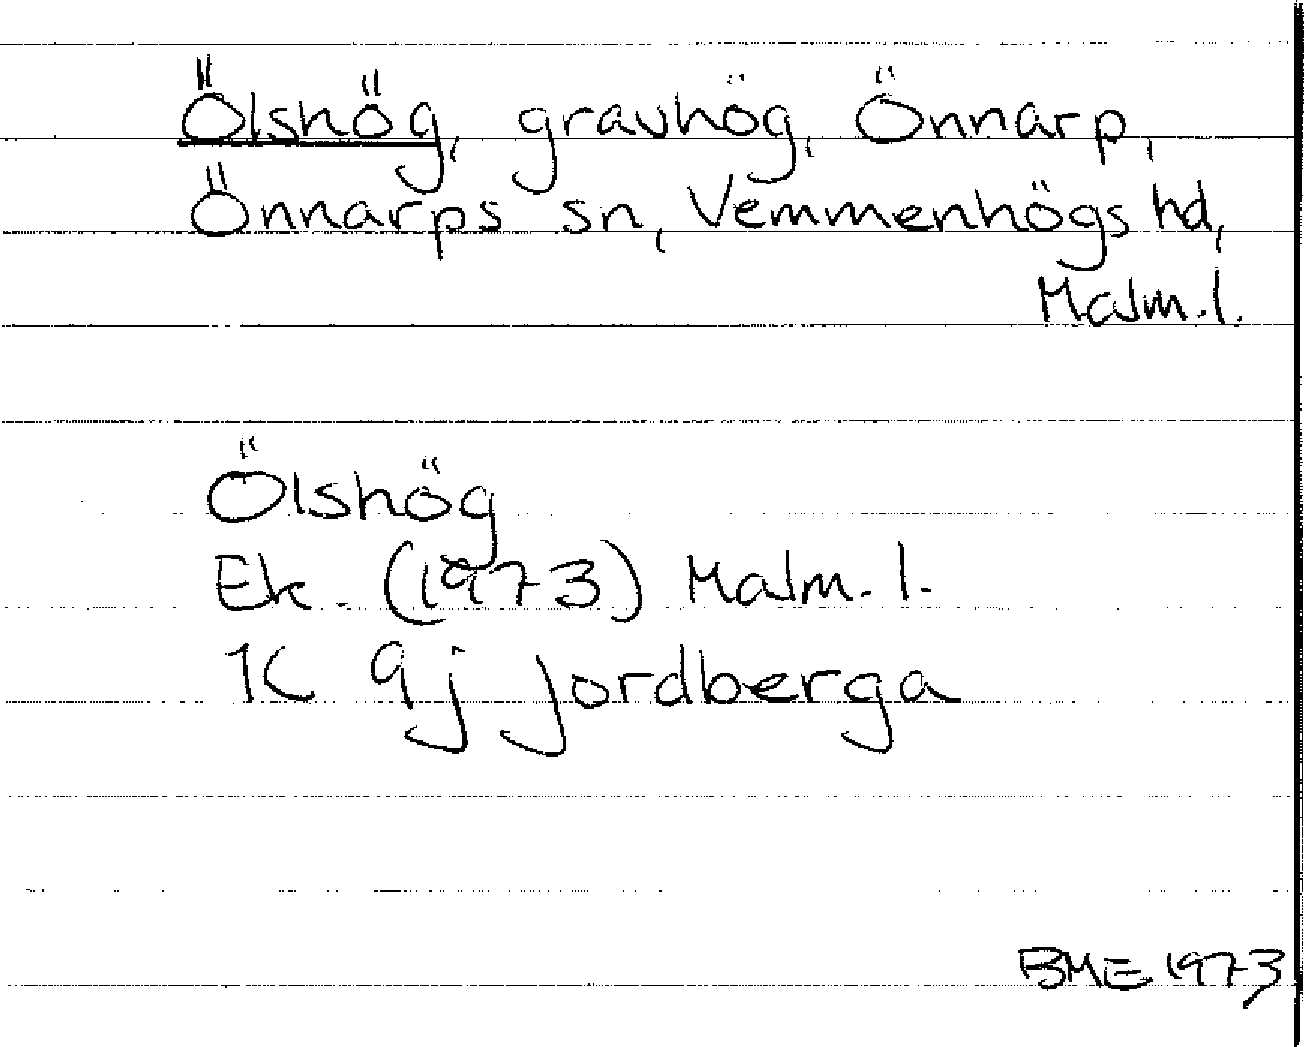 Ölshög, gravhög, Önnarp,
Önnarps sn, Vemmenhögs hd,
Malm.l.
Ölshög
Ek. (1973) Malm. l.
1C 9j Jordberga
BME 1973